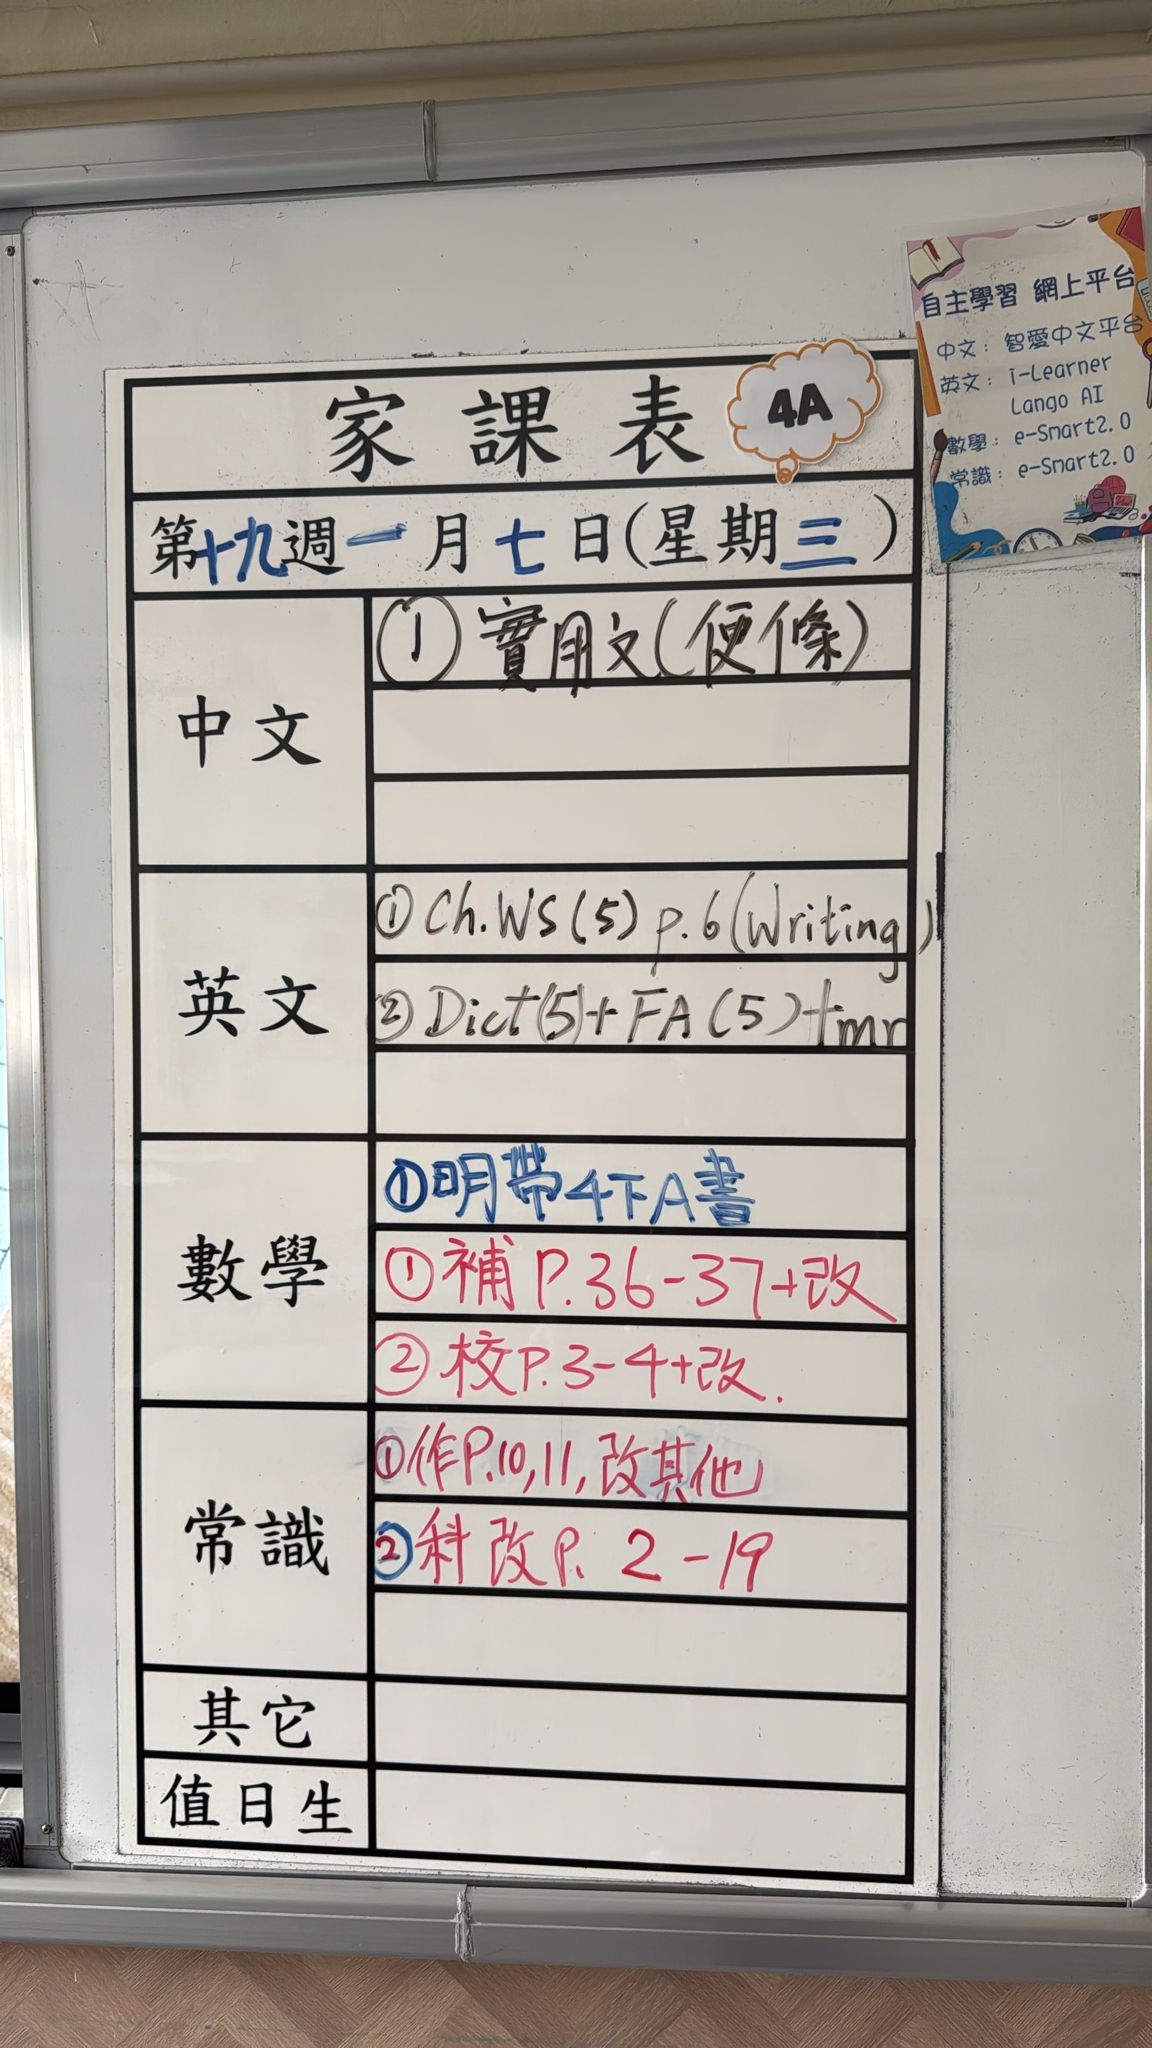 家課表
4A
第十九週一月七日(星期三)
中文
①實用文(便條)
英文
①Ch.WS(5) p.6(Writing)
②Dict(5)+FA(5)+mr
數學
①明帶4下A書
①補P.36-37+改
②校P.3-4+改.
常識
①作P.10,11,改其他
②科改P. 2-19
其它
值日生
自主學習 網上平台
中文：智愛中文平台
英文：i-Learner
Lango AI
數學：e-Smart2.0
常識：e-Smart2.0